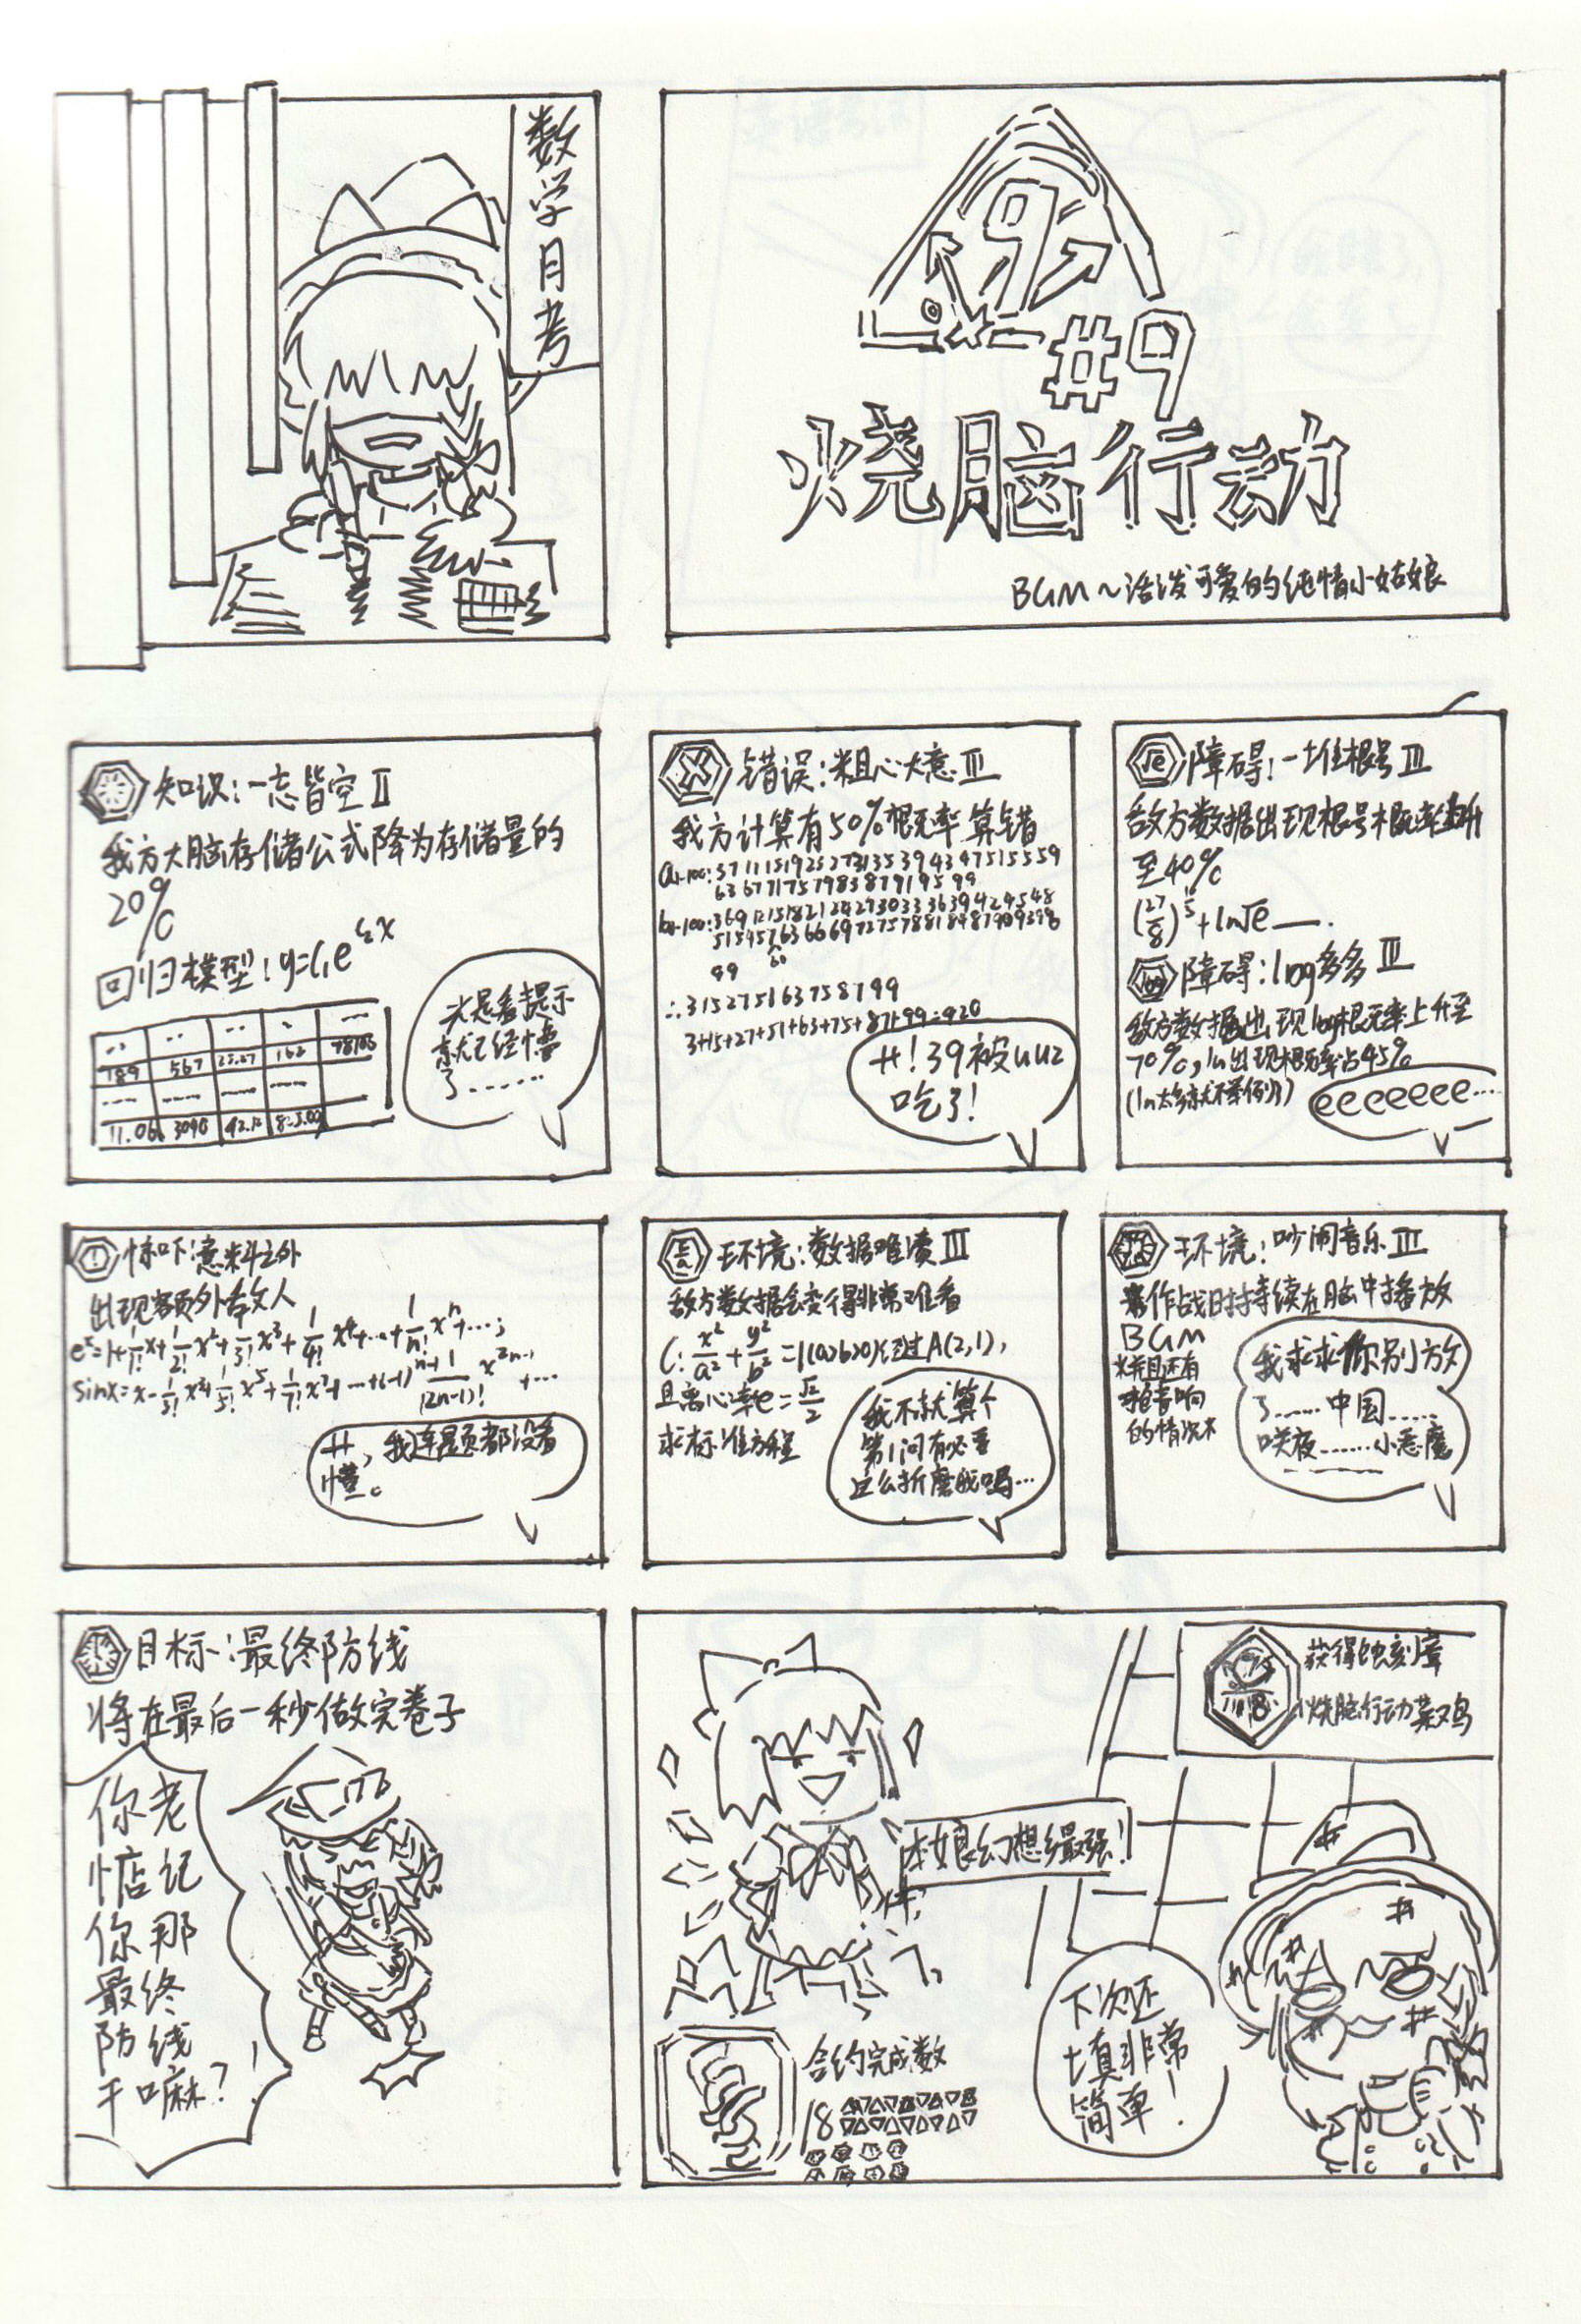 数学月考
9
#9
烧脑行动
BGM~活泼可爱的纯情小姑娘
知识:一忘皆空Ⅱ
我方大脑存储公式降为存储量的
20%
回归模型:y=c₁e^{c₂x}
789 567 25.27 162 78106
11.06 3090
光是看提示
就已经懵
了……
错误:粗心大意Ⅲ
我方计算有50%概率算错
a₁₋₁₀₀:3711151923273135394347515559
63677175798387919599
b₁₋₁₀₀:
99
∴315275163758799
3+15+27+51+63+75+87+99=420
艹!39被uuz
吃了!
√e
障碍:一堆根号Ⅲ
敌方数据出现根号概率上升
至40%
+ln√e___.
log
障碍:log多多Ⅲ
敌方数据出现log概率上升至
70%,ln出现概率占45%
(ln太多就不举例了)
eeeeeee…
惊吓:意料之外
出现额外敌人
e^x=1+1/1!x+1/2!x²+1/3!x³+1/4!x⁴+…+1/n!xⁿ+…;
sinx=x-1/3!x³+1/5!x⁵+1/7!x⁷+…+(-1)^{n-1}1/(2n-1)!x^{2n-1}+…
艹,我连题都没看
懂。
环境:数据难读Ⅲ
敌方数据会变得非常难看
C:x²/a²+y²/b²=1(a>b>0)经过A(2,1),
且离心率e=√2/2
求标准方程
我不就算个
第1问有必要
这么折磨我吗…
环境:吵闹音乐Ⅲ
作战时持续在脑中播放
BGM
并且还有
抢音响
的情况
我求求你别放
了……中国……
咲夜……小恶魔
目标:最终防线
将在最后一秒做完卷子
你老
惦记
你那
最终
防线
干嘛?!
获得蚀刻章
烧脑行动菜鸟
18
本娘幻想乡最强!
合约完成数
18
下次还
填非常
简单!